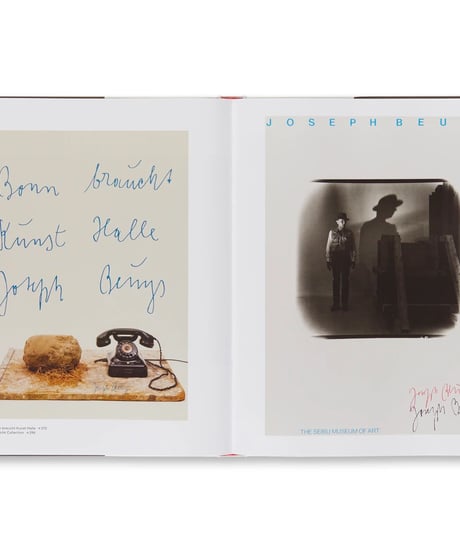 Bonn braucht
Kunst Halle
Joseph Beuys
braucht Kunst Halle
Collection
JOSEPH BEU
THE SEIBU MUSEUM OF ART
Joseph
Joseph